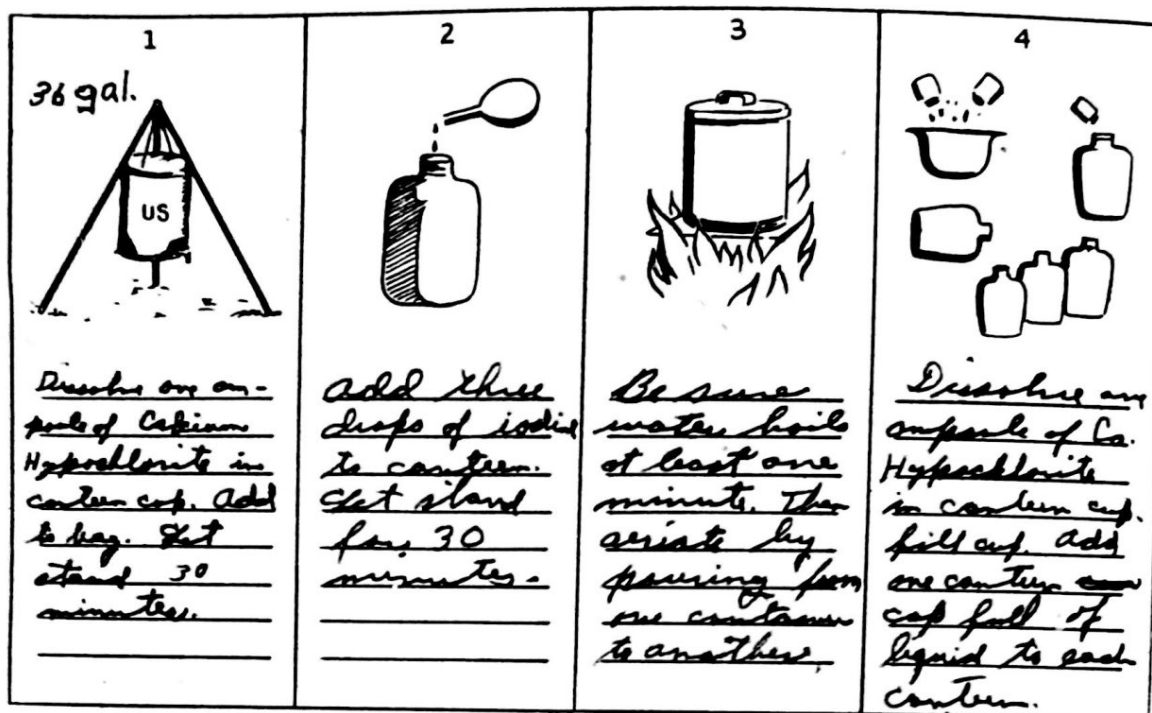 1
36 gal.
US
Dissolve one am-
poule of Calcium
Hypochlorite in
canteen cup. Add
to bag. Let
stand 30
minutes.
2
add three
drops of iodine
to canteen.
Let stand
for 30
minutes.
3
Be sure
water boils
at least one
minute. Then
aeriate by
pouring from
one container
to another.
4
Dissolve one
ampoule of Ca.
Hypochlorite
in canteen cup.
fill cup. Add
one canteen
cap full of
liquid to each
canteen.